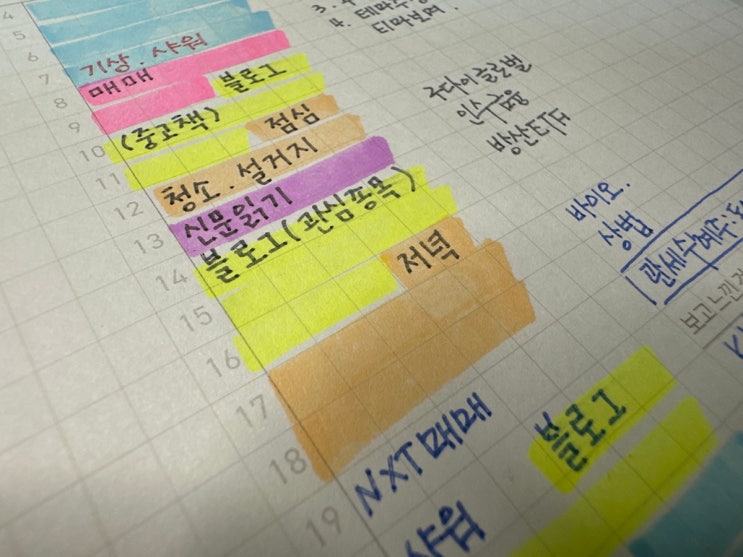 4
5
6
7
8
9
10
11
12
13
14
15
16
17
18
19
기상.샤워
매매
블로그
(중고책)
점심
청소.설거지
신문읽기
블로그(관심종목)
저녁
NXT매매
블로그
샤워
3.
4. 테마주
티마보며.
구다이글로벌
인수금융
방산ETF
바이오.
상법
관세수혜주:
보고느낀